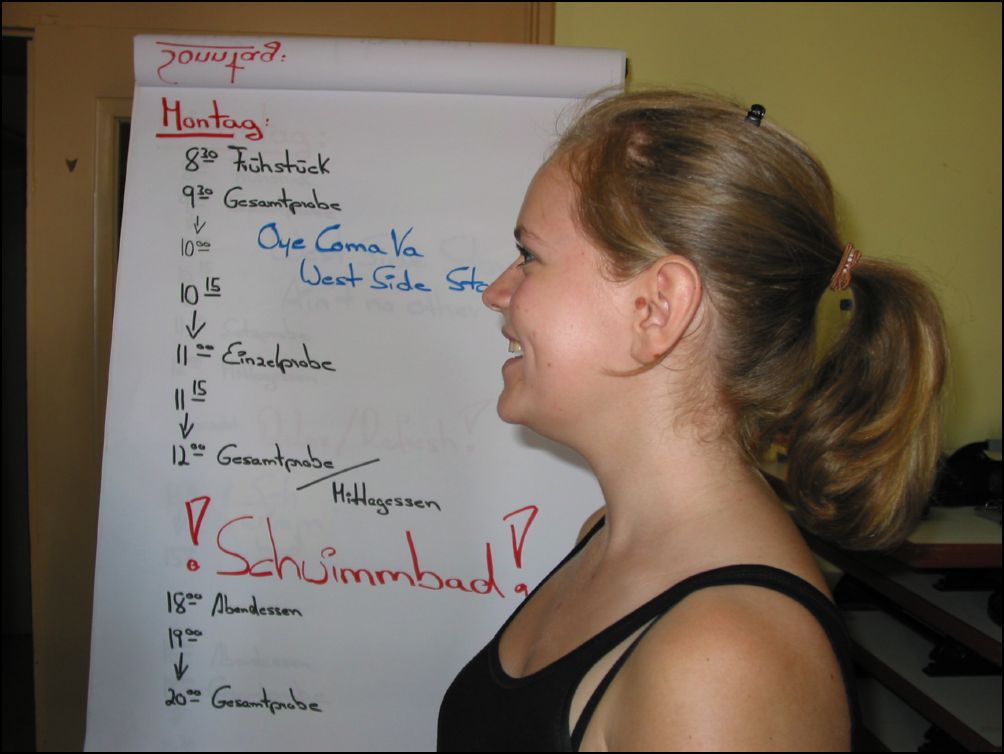 Sonntag:
Montag:
8 30 Frühstück
9 30 Gesamtprobe
↓
10 00 Oye Coma Va
West Side Sto
10 15
↓
11 00 Einzelprobe
11 15
↓
12 00 Gesamtprobe /
Mittagessen
! Schwimmbad !
18 00 Abendessen
19 00
↓
20 00 Gesamtprobe